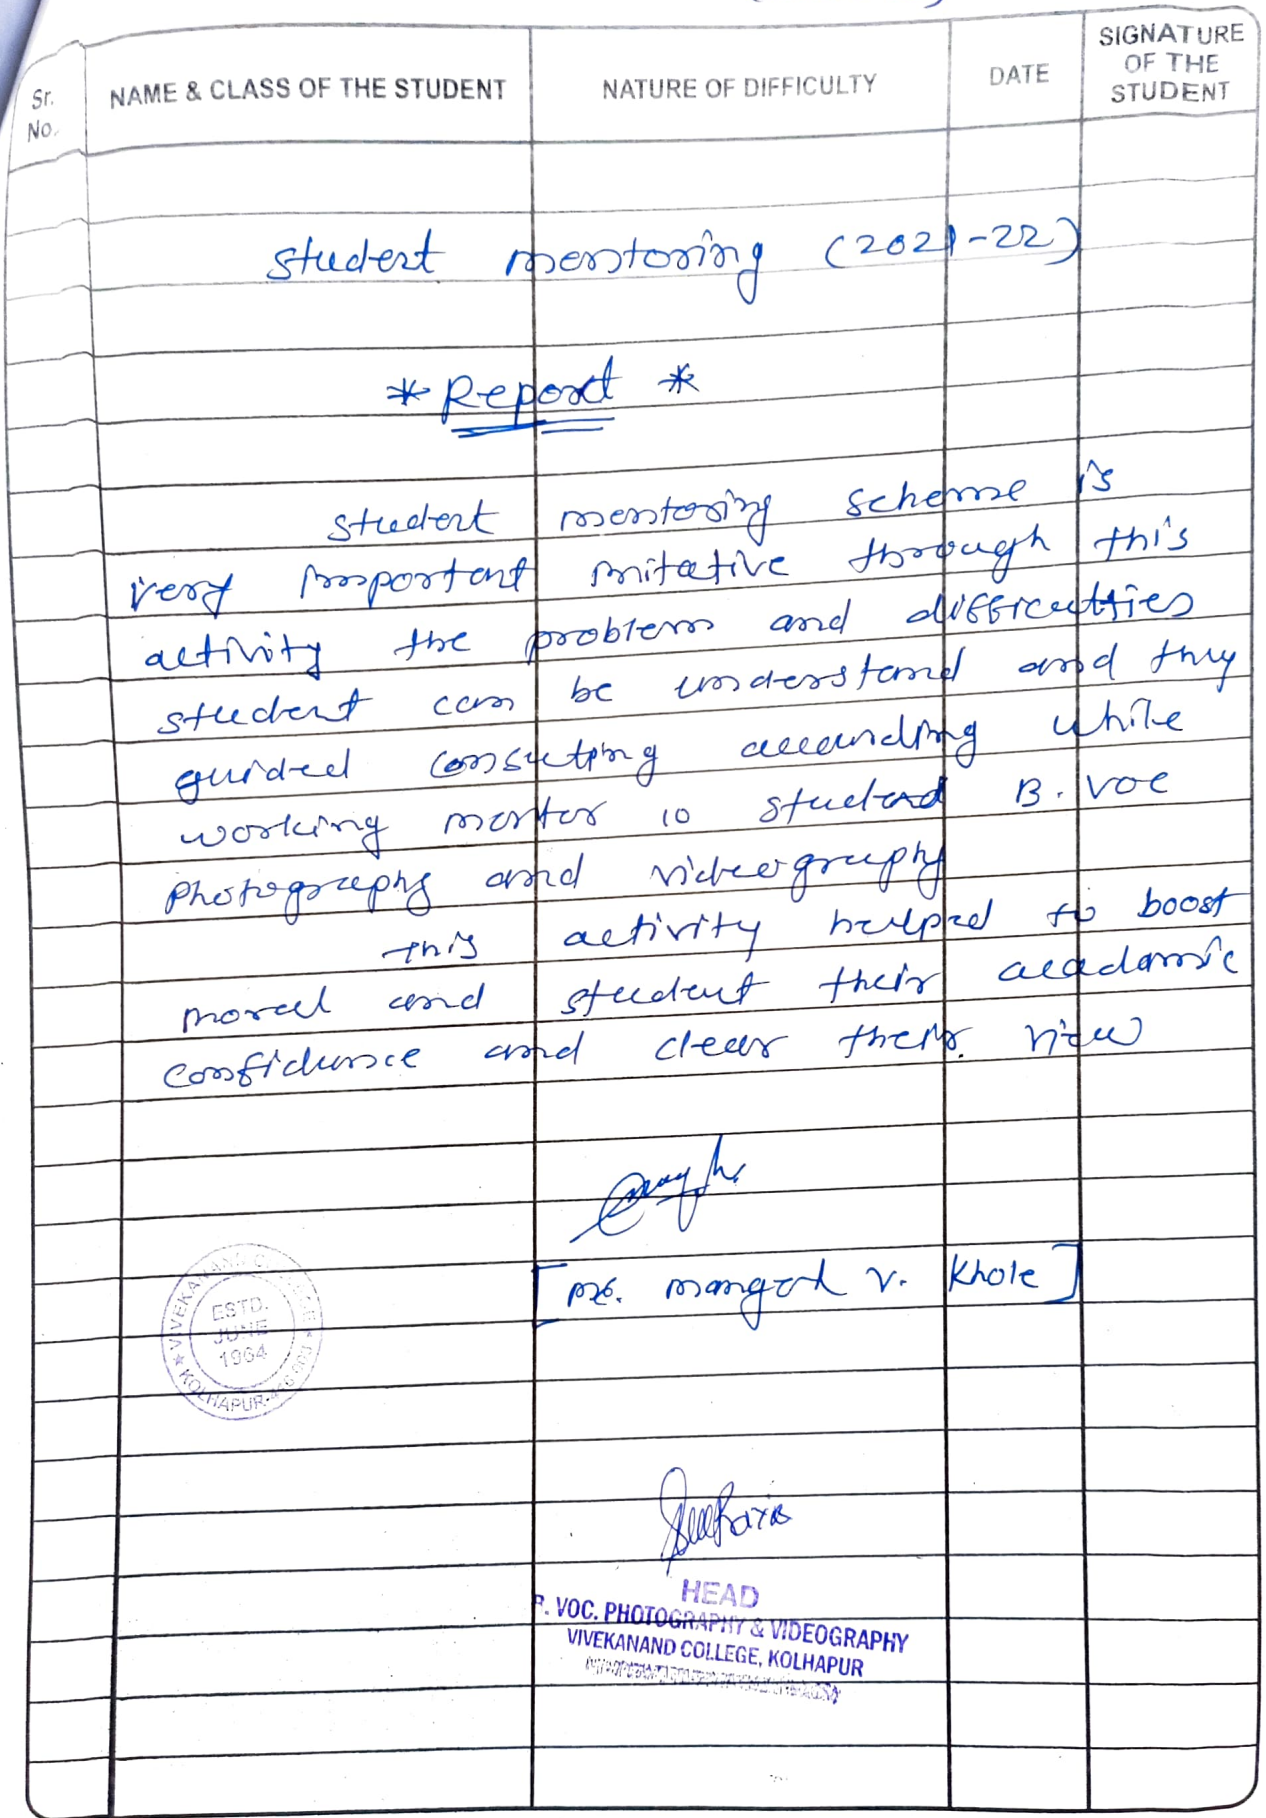 Sr. No.
NAME & CLASS OF THE STUDENT
NATURE OF DIFFICULTY
DATE
SIGNATURE OF THE STUDENT
student mentoring (2021-22)
* Report *
student mentoring scheme is
very important initative through this
activity the problem and difficulties
student can be understand and they
guided consulting according while
working mentor 10 student B. VOC
photography and videography
this activity helped to boost
moral and student their academic
confidence and clear their view
[Mr. Mangesh V. Khole]
VIVEKANAND COLLEGE
ESTD.
JUNE
1964
KOLHAPUR
HEAD
B. VOC. PHOTOGRAPHY & VIDEOGRAPHY
VIVEKANAND COLLEGE, KOLHAPUR